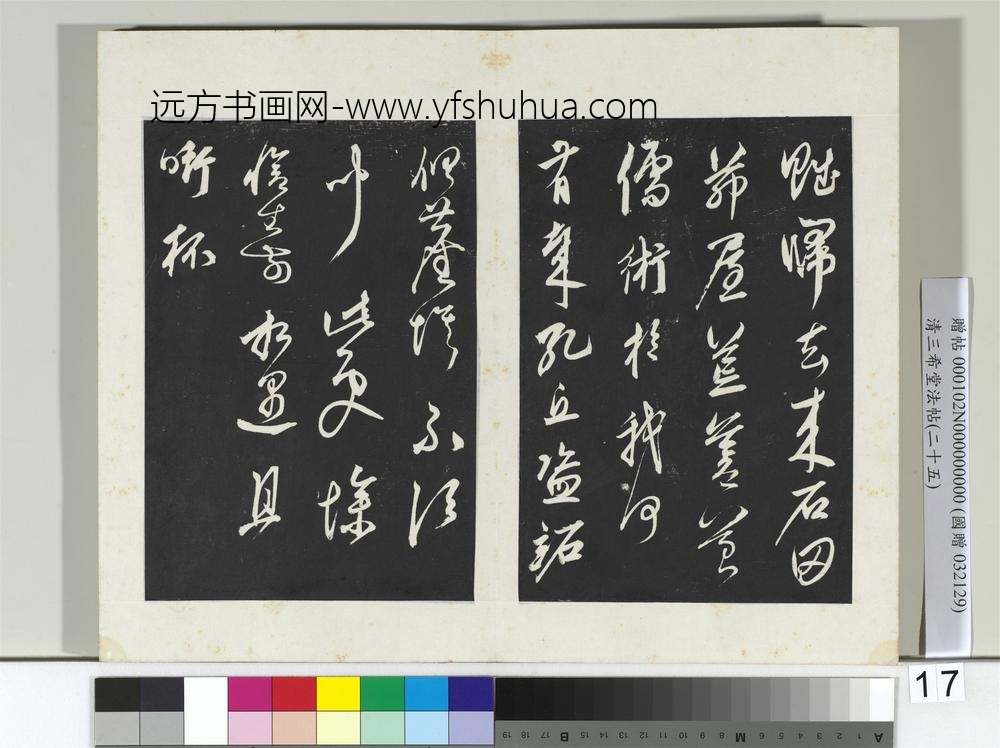 远方书画网-www.yfshuhua.com
賦歸去来石田
茅屋荒蒼苔
儒術於我何
有哉孔丘盜跖
俱塵埃不須
聞此意慘
愴生前相遇且
銜杯
贈帖 000102N000000000 (國贈 032129)
清三希堂法帖(二十五)
17
A 1 2 3 4 5 6 M 8 9 10 11 12 13 14 15 B 17 18 19